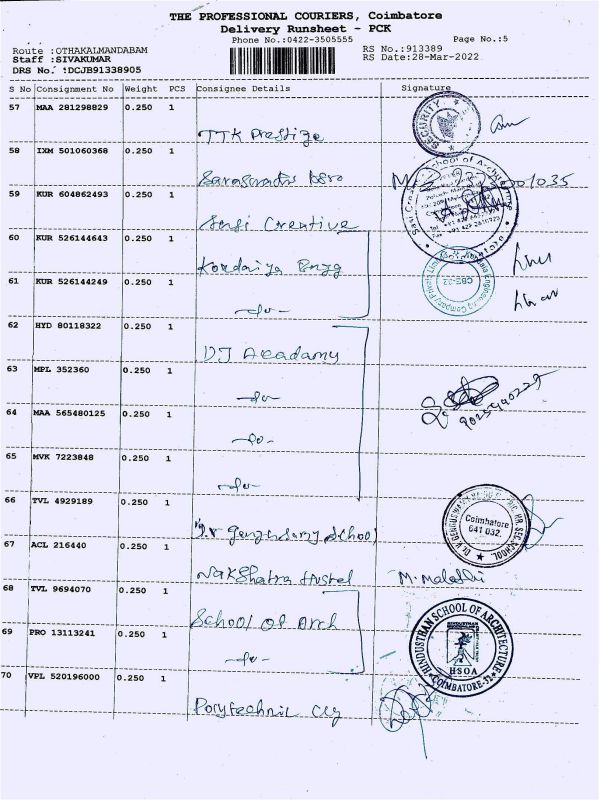 THE PROFESSIONAL COURIERS, Coimbatore
Delivery Runsheet - PCK
Phone No.:0422-3505555 Page No.:5
Route :OTHAKALMANDABAM RS No.:913389
Staff :SIVAKUMAR RS Date:28-Mar-2022
DRS No. :DCJB91338905
S No Consignment No Weight PCS Consignee Details Signature
57 MAA 281298829 0.250 1
TTK Prestige
SECURITY
58 IXM 501060368 0.250 1
59 KUR 604862493 0.250 1
Creative
60 KUR 526144643 0.250 1
Engg
61 KUR 526144249 0.250 1
-do-
CBE-32
62 HYD 80118322 0.250 1
DJ Acadamy
63 MPL 352360 0.250 1
-do-
64 MAA 565480125 0.250 1
-do-
65 MVK 7223848 0.250 1
-do-
66 TVL 4929189 0.250 1
School
Coimbatore
641 032.
67 ACL 216440 0.250 1
Nakshatra Hostel M. Malathi
68 TVL 9694070 0.250 1
School of Arch
69 PRO 13113241 0.250 1
-do-
HINDUSTHAN SCHOOL OF ARCHITECTURE
HSOA
COIMBATORE-32
70 VPL 520196000 0.250 1
Polytechnic Clg